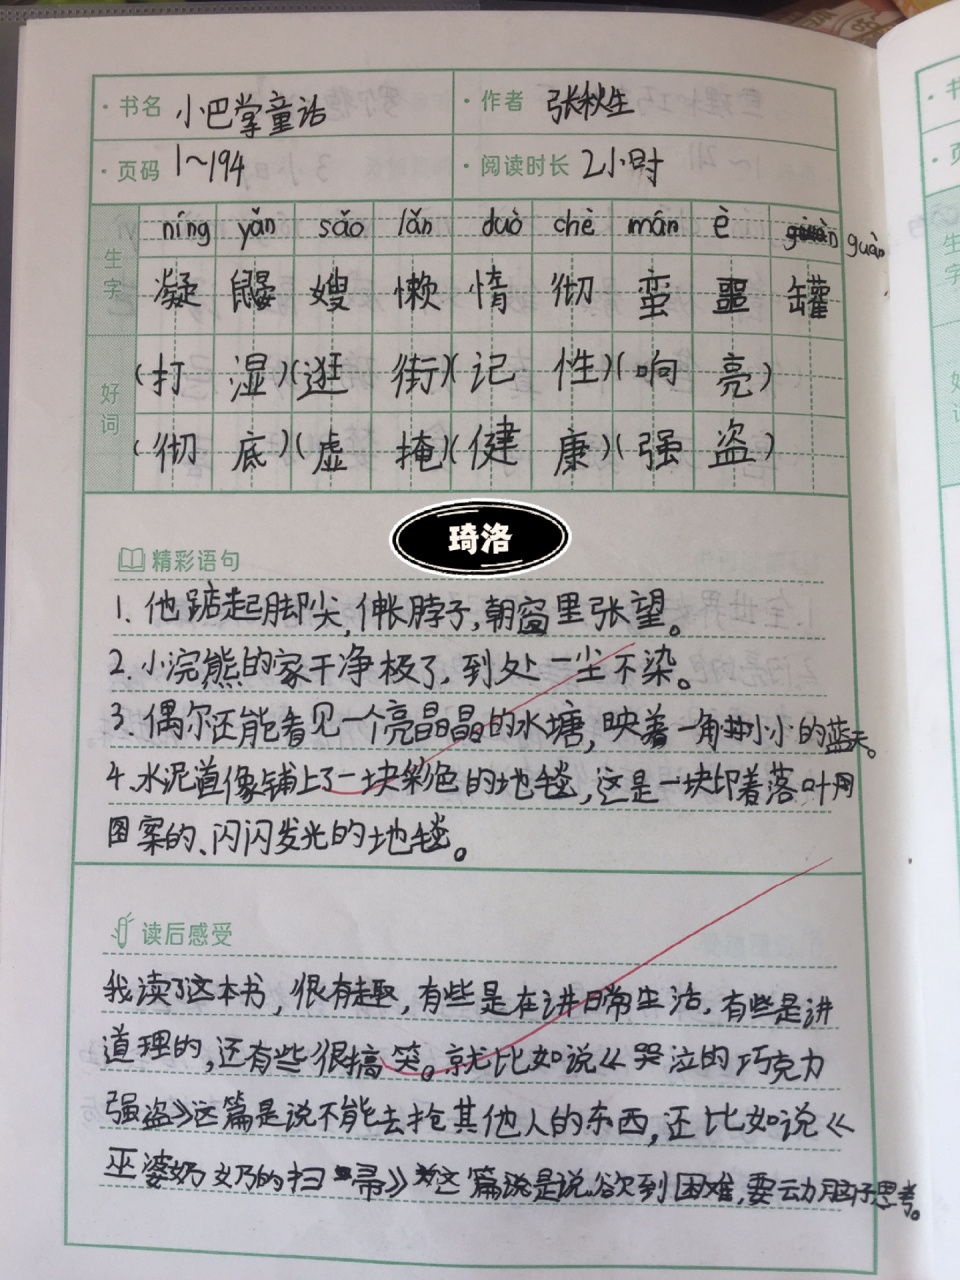 ·书名 小巴掌童话 ·作者 张秋生
·页码 1~194 ·阅读时长 2小时
生字 níng yǎn sǎo lǎn duò chè mán è guàn
凝 鼹 嫂 懒 惰 彻 蛮 噩 罐
好词 (打湿)(逛街)(记性)(响亮)
(彻底)(虚掩)(健康)(强盗)
琦洛
精彩语句
1. 他踮起脚尖,伸长脖子,朝窗里张望。
2. 小浣熊的家干净极了,到处一尘不染。
3. 偶尔还能看见一个亮晶晶的水塘,映着一角小小的蓝天。
4. 水泥道像铺上了一块彩色的地毯,这是一块印着落叶
图案的、闪闪发光的地毯。
读后感受
我读了这本书,很有趣,有些是在讲日常生活,有些是讲
道理的,还有些很搞笑。就比如说《哭泣的巧克力
强盗》这篇是说不能去抢其他人的东西,还比如说《
巫婆奶奶的扫帚》这篇说是说欲到困难,要动脑子思考。